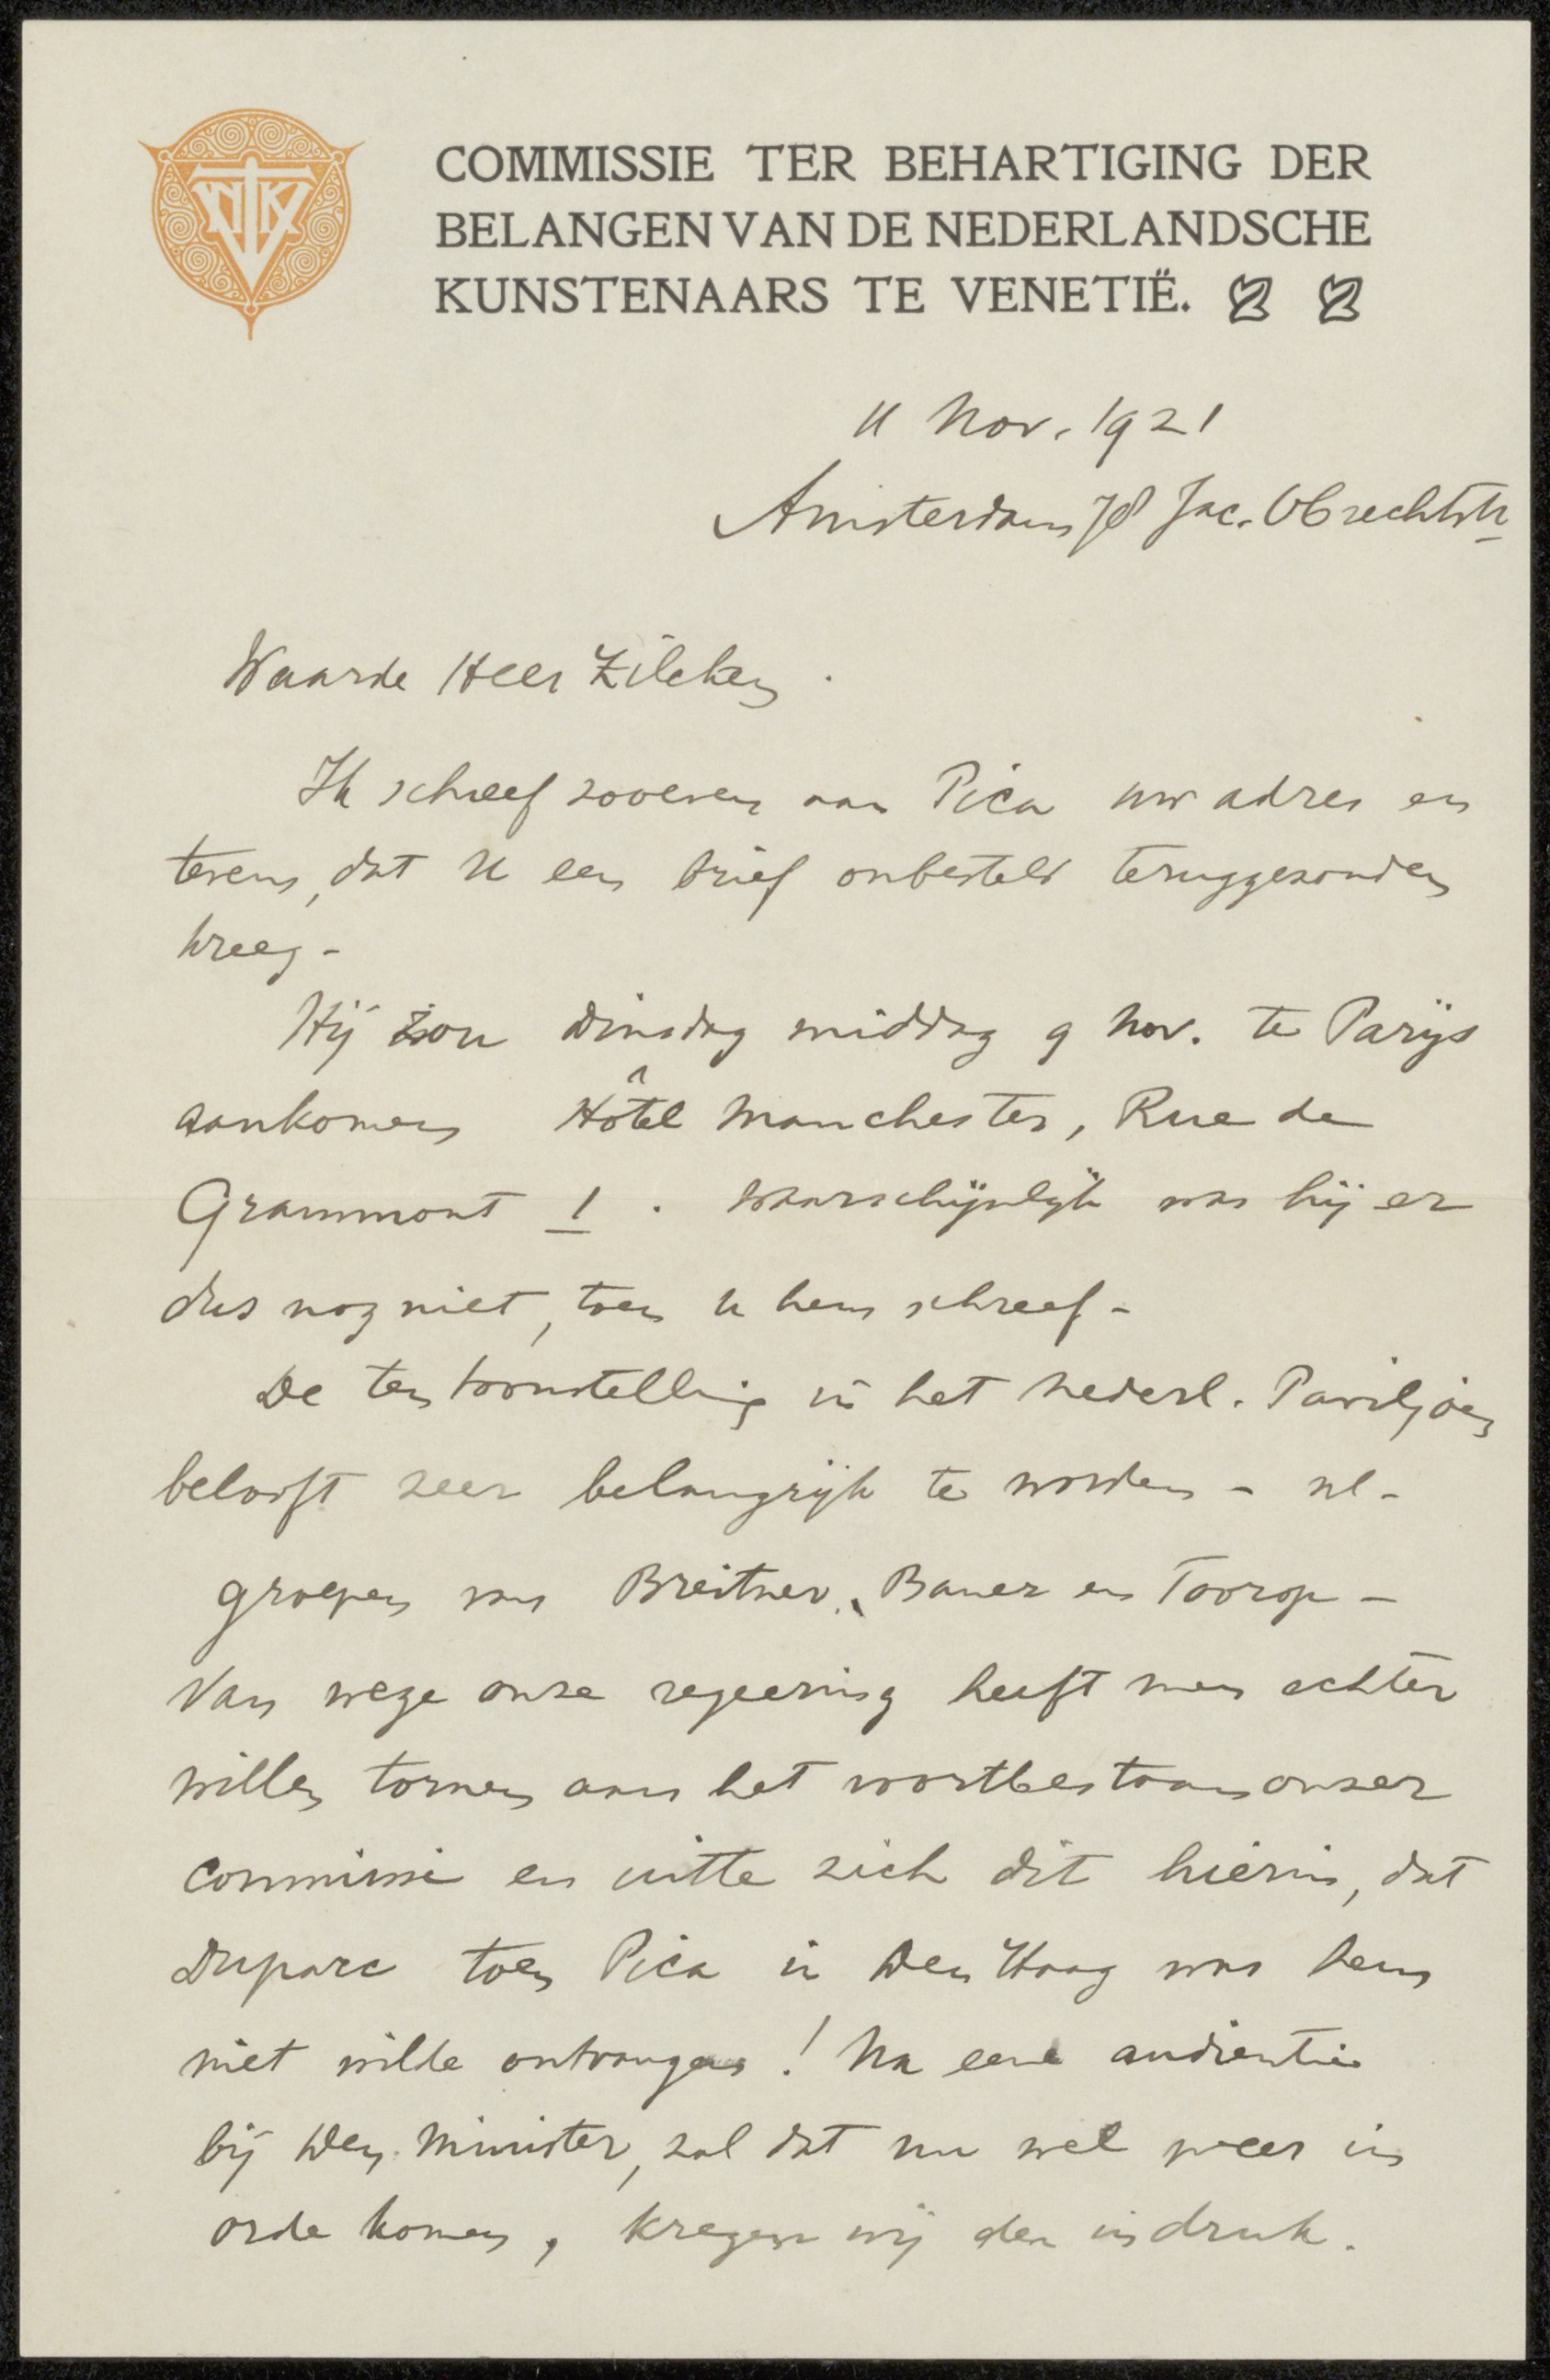 COMMISSIE TER BEHARTIGING DER
BELANGEN VAN DE NEDERLANDSCHE
KUNSTENAARS TE VENETIË.
11 Nov. 1921
Amsterdam 78 Jac. Obrechtstr
Waarde Heer Zilcken.
Ik schreef zooeven aan Pica uw adres en
tevens, dat U een brief onbesteld teruggezonden
kreeg -
Hij zou Dinsdag middag 9 Nov. te Parijs
aankomen Hôtel Manchester, Rue de
Grammont 1. Waarschijnlijk was hij er
dus nog niet, toen u hem schreef -
De tentoonstelling in het Nederl. Paviljoen
belooft zeer belangrijk te worden - nl -
groepen van Breitner, Bauer en Toorop -
Van wege onze regeering heeft men echter
willen tornen aan het voortbestaan onzer
Commissie en uitte zich dit hierin, dat
Duparc toen Pica in Den Haag was hem
niet wilde ontvangen! Na eene audientie
bij den Minister, zal dat nu wel weer in
orde komen, kregen wij den indruk.